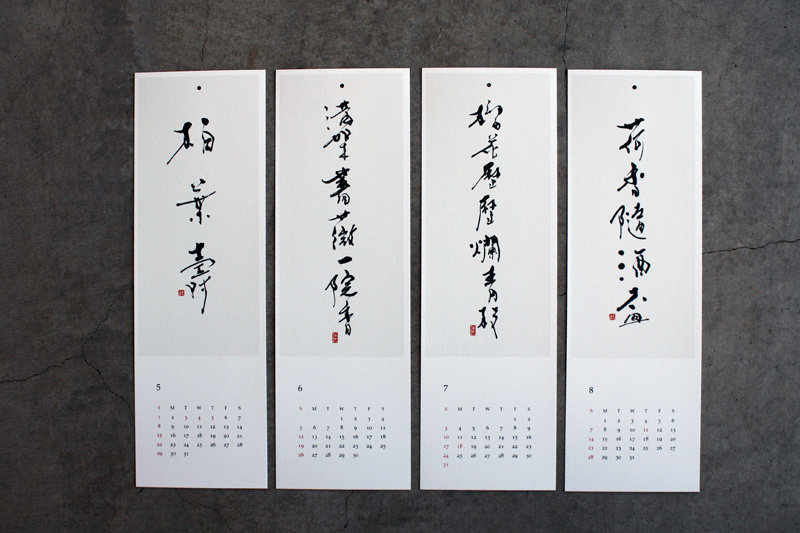 柏葉壽
5
S M T W T F S
1 2 3 4 5 6 7
8 9 10 11 12 13 14
15 16 17 18 19 20 21
22 23 24 25 26 27 28
29 30 31
滿架薔薇一院香
6
S M T W T F S
1 2 3 4
5 6 7 8 9 10 11
12 13 14 15 16 17 18
19 20 21 22 23 24 25
26 27 28 29 30
榴花歷歷爛青
7
S M T W T F S
1 2
3 4 5 6 7 8 9
10 11 12 13 14 15 16
17 18 19 20 21 22 23
24 25 26 27 28 29 30
31
荷香隨酒盃
8
S M T W T F S
1 2 3 4 5 6
7 8 9 10 11 12 13
14 15 16 17 18 19 20
21 22 23 24 25 26 27
28 29 30 31